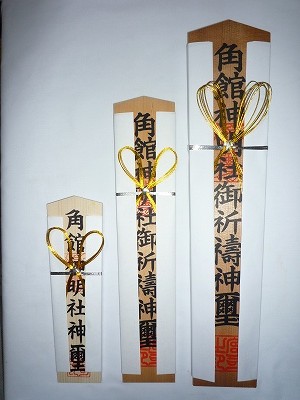 角館神明社御祈禱神璽
角館神明社御祈禱神璽
角館神明社神璽